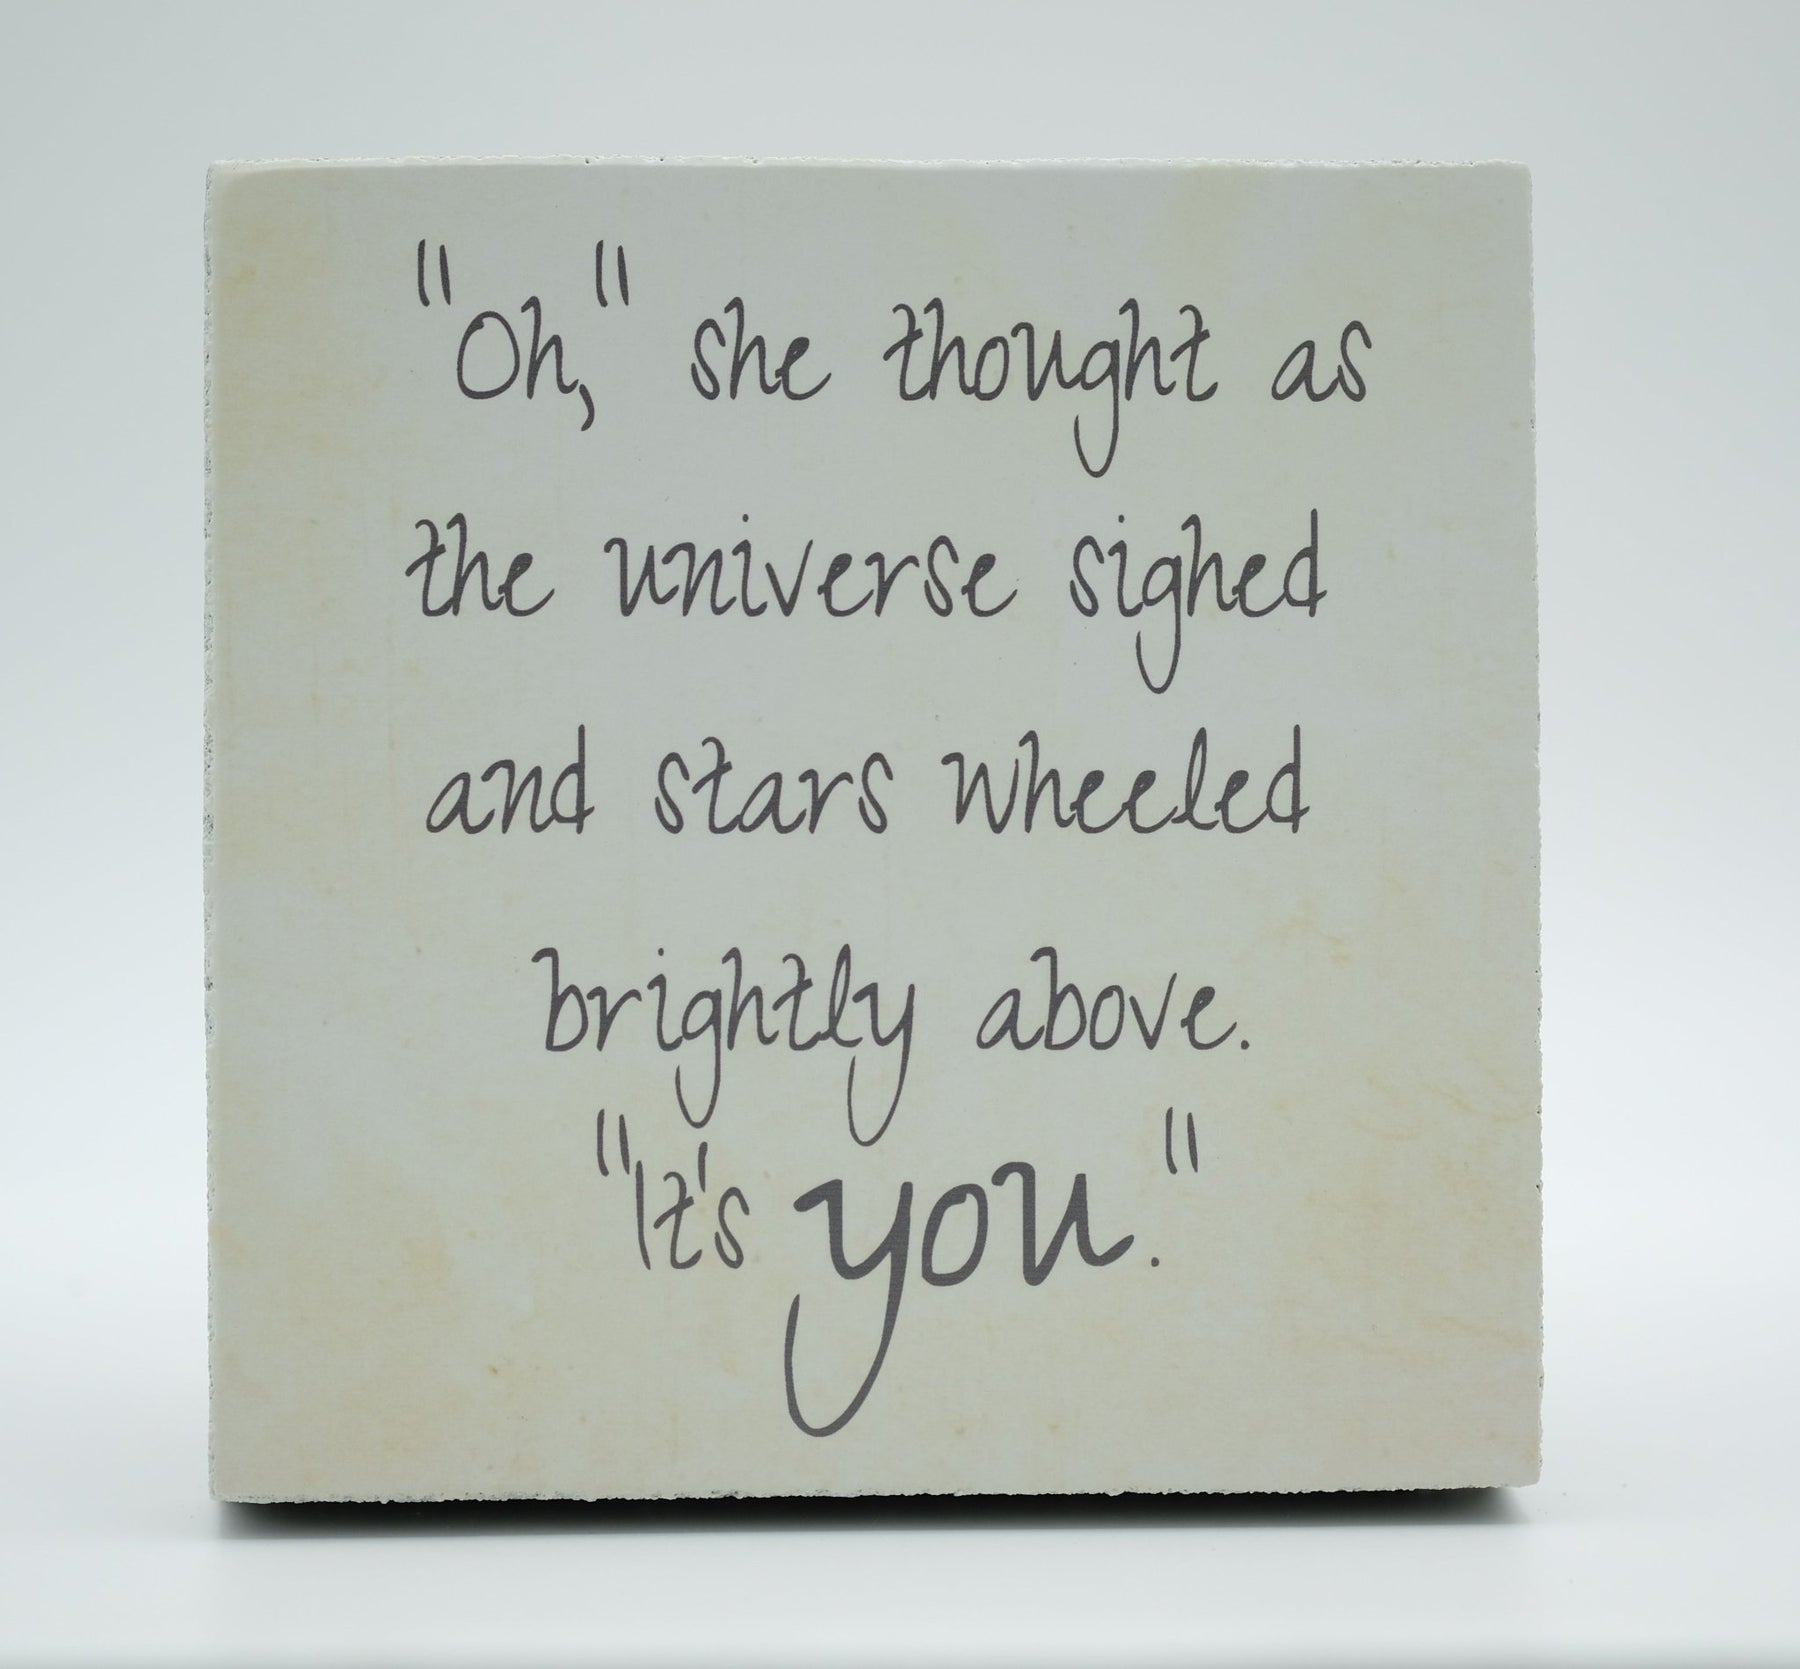 "Oh," she thought as
the universe sighed
and stars wheeled
brightly above.
"It's you."